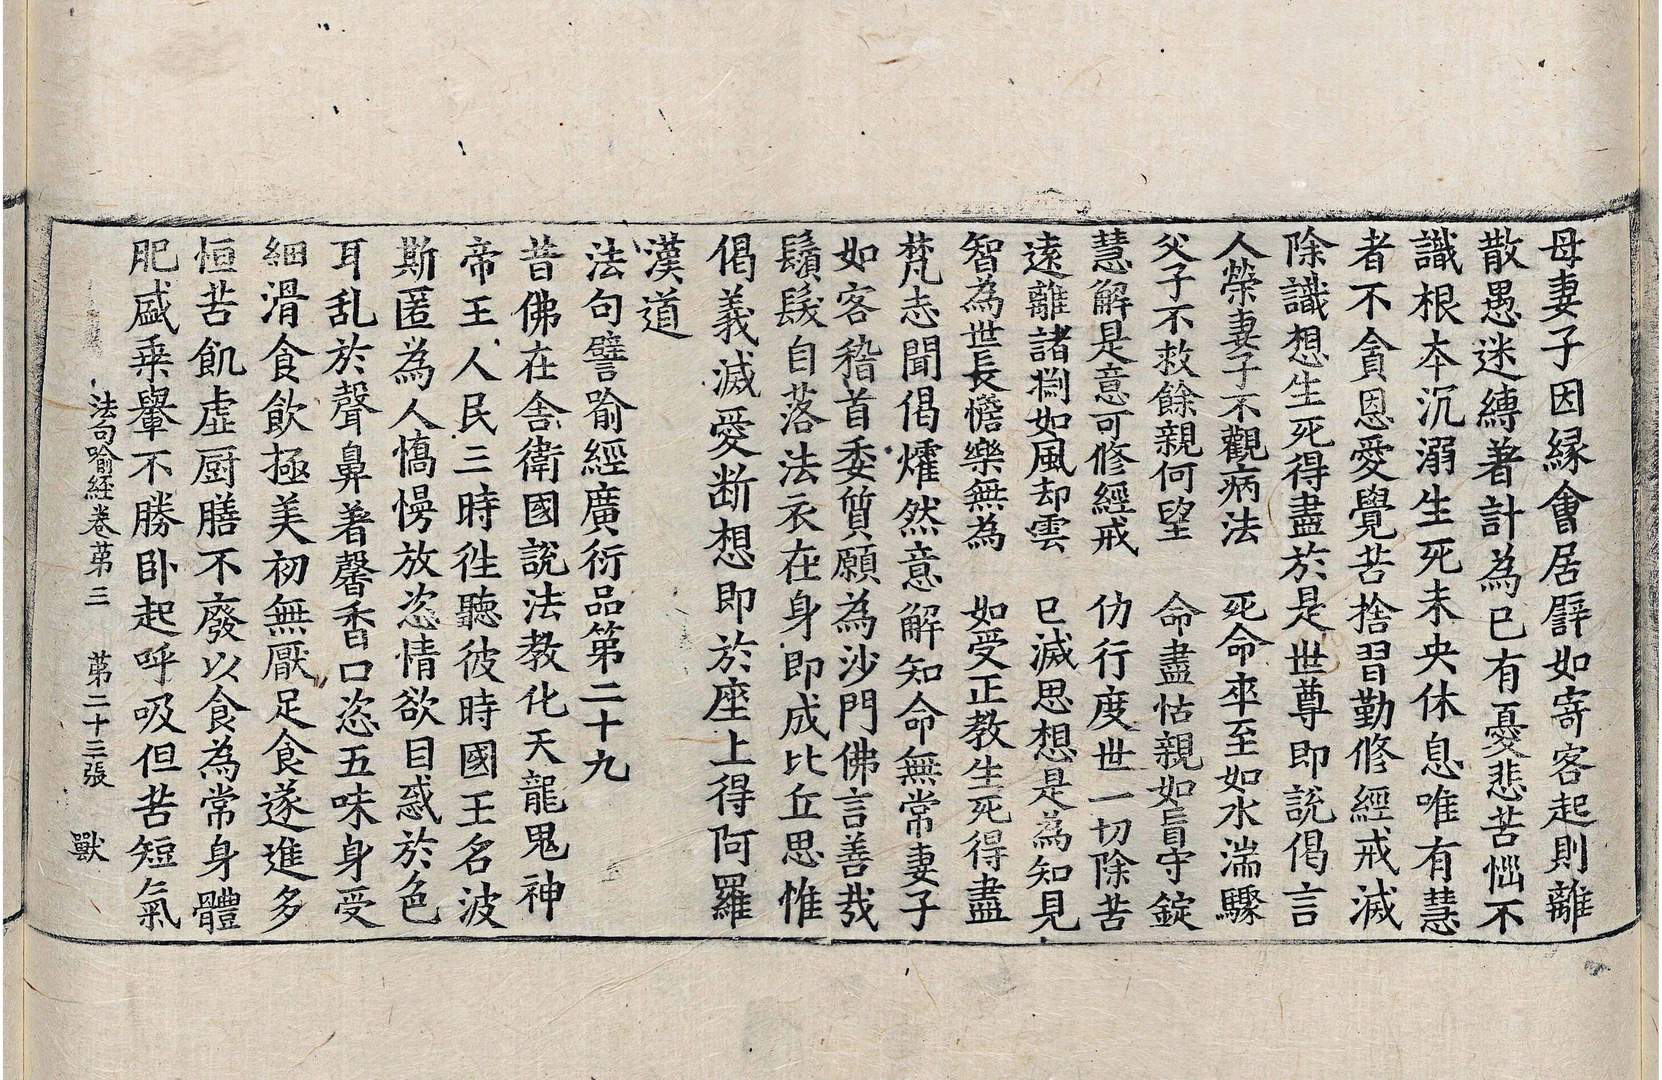 母妻子因縁會居譬如寄客起則離
散愚迷縛著計為已有憂悲苦惱不
識根本沉溺生死未央休息唯有慧
者不貪恩愛覺苦捨習勤修經戒滅
除識想生死得盡於是世尊即說偈言
人榮妻子不觀病法　死命卒至如水湍驟
父子不救餘親何望　命盡怙親如盲守錠
慧解是意可修經戒　仂行度世一切除苦
遠離諸渕如風却雲　已滅思想是為知見
智為世長惔樂無為　如受正教生死得盡
梵志聞偈㸌然意解知命無常妻子
如客稽首委質願為沙門佛言善哉
鬚髮自落法衣在身即成比丘思惟
偈義滅愛断想即於座上得阿羅
漢道
法句譬喻經廣衍品第二十九
昔佛在舍衛國說法教化天龍鬼神
帝王人民三時徃聽彼時國王名波
斯匿為人憍慢放恣情欲目惑於色
耳乱於聲鼻著馨香口恣五味身受
細滑食飲極美初無厭足食遂進多
恒苦飢虛厨膳不廢以食為常身體
肥盛乗轝不勝卧起呼吸但苦短氣
法句喻経卷苐三　苐二十三張　獸